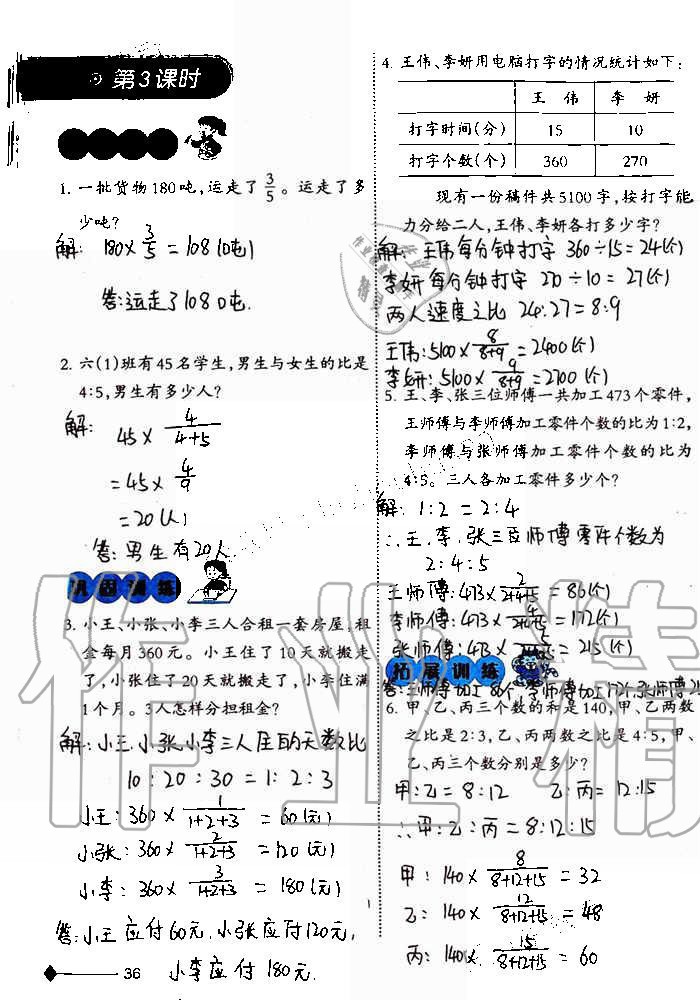 第3课时
1. 一批货物180吨,运走了3/5。运走了多
少吨?
解: 180×3/5=108(吨)
答:运走了108吨.
2. 六(1)班有45名学生,男生与女生的比是
4:5,男生有多少人?
解: 45×4/(4+5)
=45×4/9
=20(人)
答:男生有20人
巩固训练
3. 小王、小张、小李三人合租一套房屋,租
金每月360元。小王住了10天就搬走
了,小张住了20天就搬走了,小李住满
1个月。3人怎样分担租金?
解:小王,小张,小李三人住的天数比
10:20:30=1:2:3
小王:360×1/(1+2+3)=60(元)
小张:360×2/(1+2+3)=120(元)
小李:360×3/(1+2+3)=180(元)
答:小王应付60元,小张应付120元,
小李应付180元.
36
4. 王伟、李妍用电脑打字的情况统计如下:
王 伟 李 妍
打字时间(分) 15 10
打字个数(个) 360 270
现有一份稿件共5100字,按打字能
力分给二人,王伟、李妍各打多少字?
解:王伟每分钟打字 360÷15=24(个)
李妍每分钟打字 270÷10=27(个)
两人速度之比 24:27=8:9
王伟:5100×8/(8+9)=2400(个)
李妍:5100×9/(8+9)=2700(个)
5. 王、李、张三位师傅一共加工473个零件,
王师傅与李师傅加工零件个数的比为1:2,
李师傅与张师傅加工零件个数的比为
4:5。三人各加工零件多少个?
解: 1:2=2:4
∴王,李,张三位师傅零件个数为
2:4:5
王师傅:473×2/(2+4+5)=86(个)
李师傅:473×4/(2+4+5)=172(个)
张师傅:473×5/(2+4+5)=215(个)
拓展训练
6. 甲、乙、丙三个数的和是140,甲、乙两数
之比是2:3,乙、丙两数之比是4:5,甲、
乙、丙三个数分别是多少?
甲:乙=8:12 乙:丙=12:15
∴甲:乙:丙=8:12:15
甲:140×8/(8+12+15)=32
乙:140×12/(8+12+15)=48
丙:140×15/(8+12+15)=60
作业精